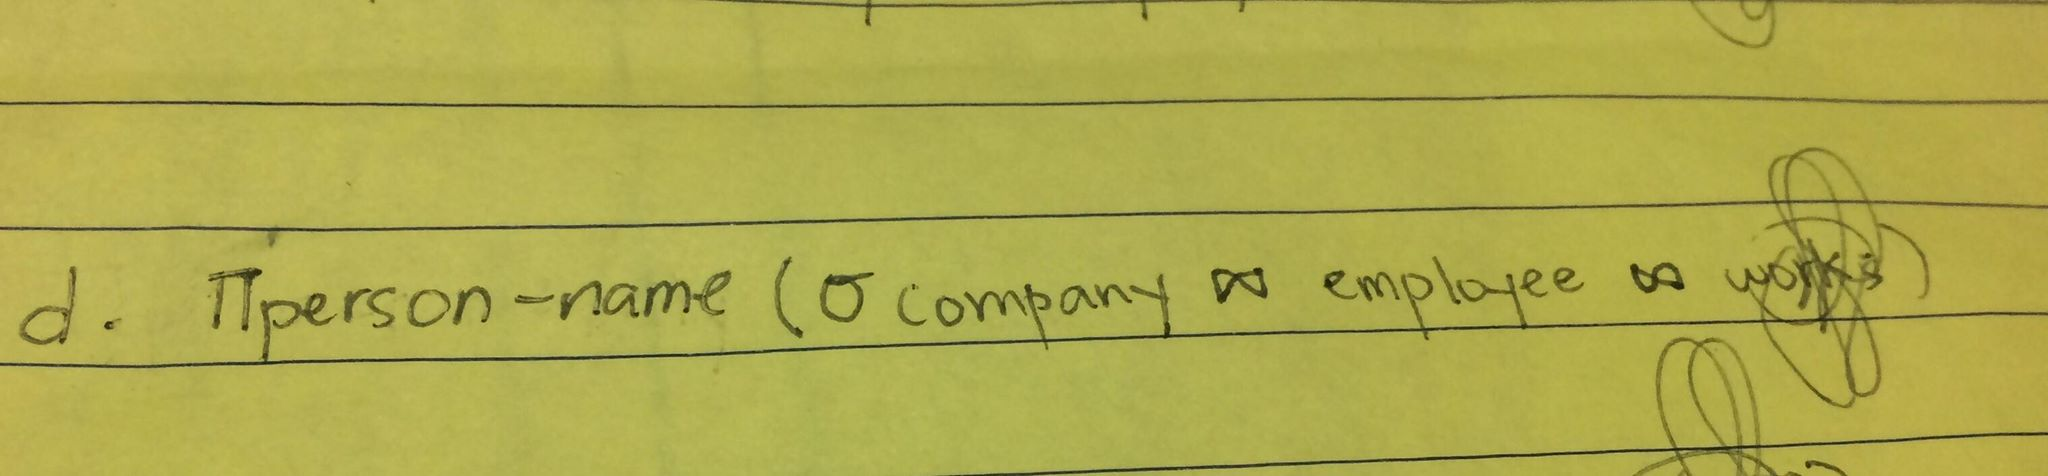 d. Πperson-name (σ company ⋈ employee ⋈ works)